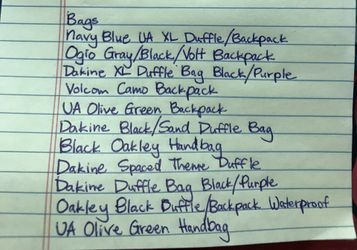 Bags
Navy Blue UA XL Duffle/Backpack
Ogio Gray/Black/Volt Backpack
Dakine XL Duffle Bag Black/Purple
Volcom Camo Backpack
UA Olive Green Backpack
Dakine Black/Sand Duffle Bag
Black Oakley Handbag
Dakine Spaced Theme Duffle
Dakine Duffle Bag Black/Purple
Oakley Black Duffle/Backpack Waterproof
UA Olive Green Handbag